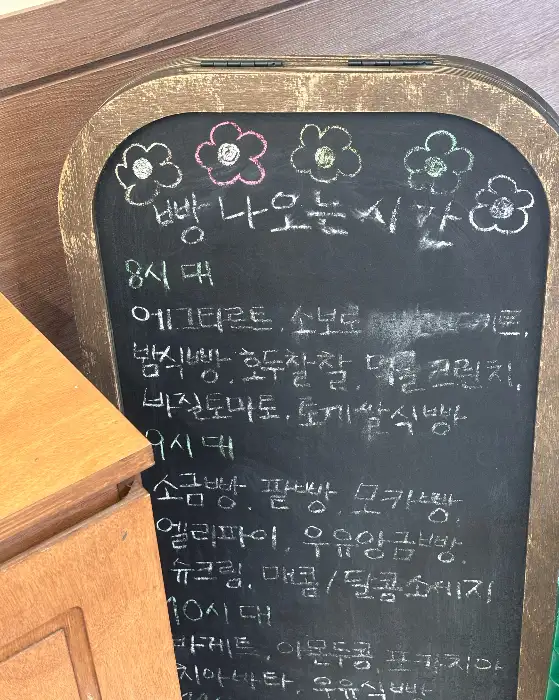 빵 나오는 시간
8시 대
에그타르트, 소보로
밤식빵, 호두찰찰, 크런치,
바질토마토, 통쌀식빵
9시 대
소금빵, 팥빵, 모카빵,
엘리파이, 우유앙금빵,
슈크림, 매콤/달콤소세지
10시 대
아몬두콩, 포카치아
치아바타, 우유식빵